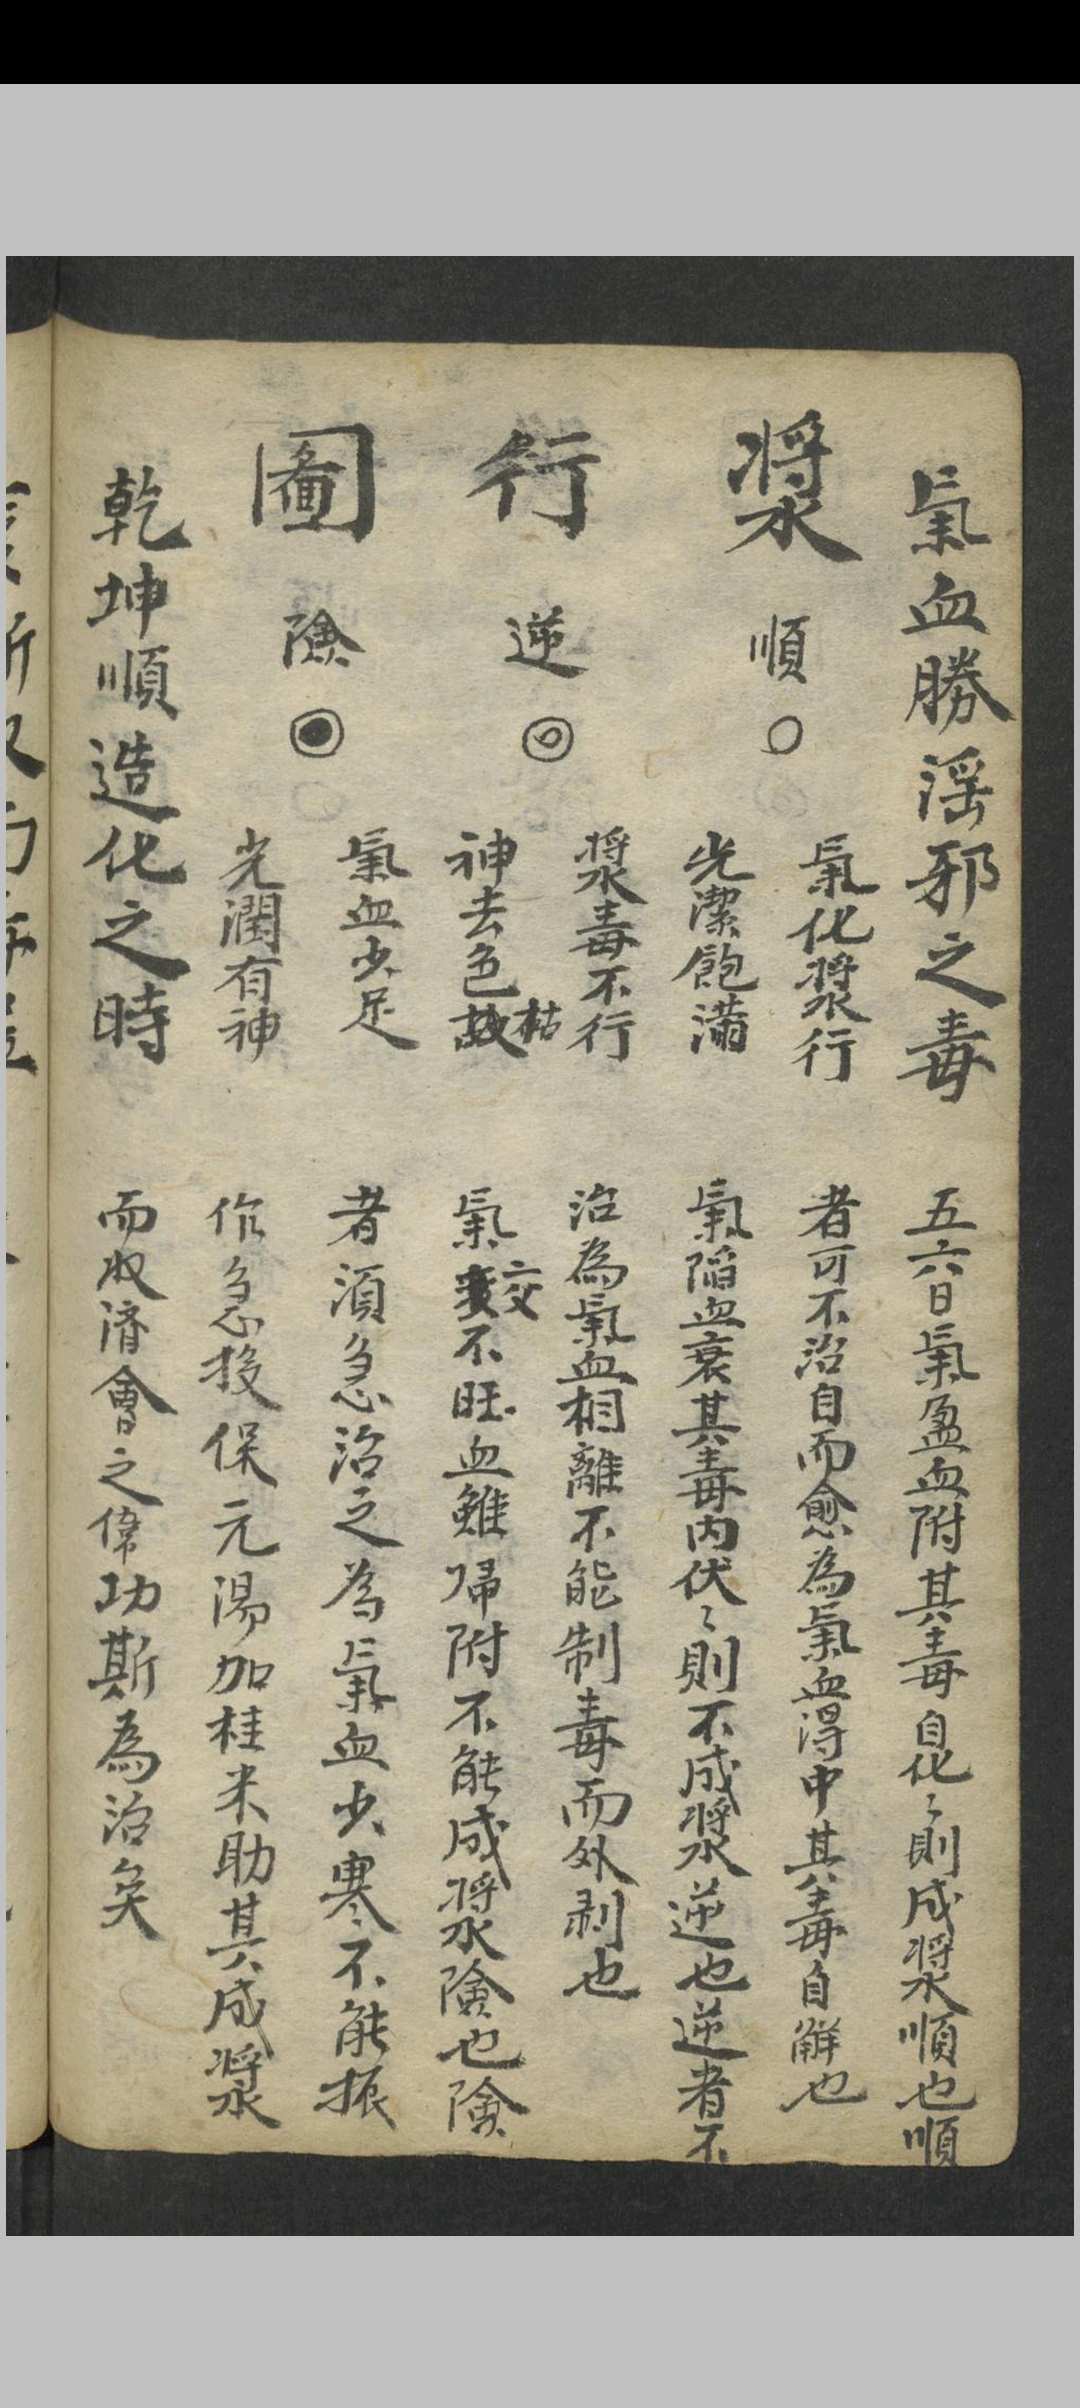 氣血勝淫邪之毒
漿行圖
順○
氣化漿行
光潔飽滿
逆◎
漿毒不行
神去色枯
險
氣血少足
光潤有神
乾坤順造化之時
五六日氣盈血附其毒自化〻則成漿順也順
者可不治自而愈為氣血得中其毒自解也
氣陷血衰其毒內伏〻則不成漿逆也逆者不
治為氣血相離不能制毒而外剥也
氣交不旺血雖歸附不能成漿險也險
者須急治之為氣血少寒不能振
作急投保元湯加桂米助其成漿
而收濟會之偉功斯為治矣